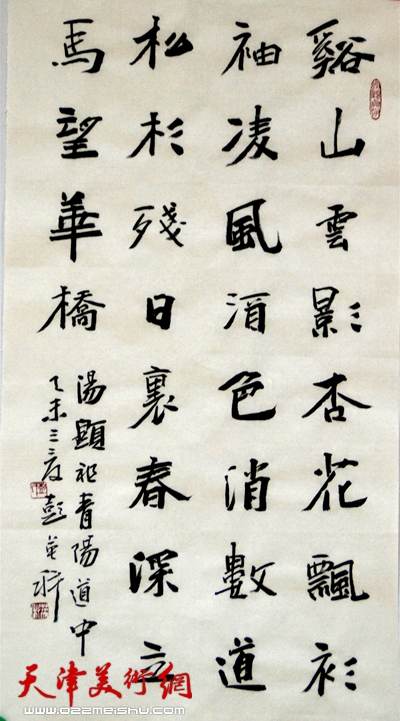 谿山雲影杏花飄衫
袖凌風酒色消數道
松杉殘日裏春深立
馬望華橋
湯顯祖青陽道中
乙未三度彭英科
天津美術網
www.022meishu.com